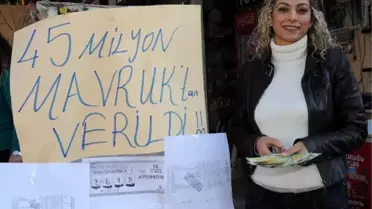 45 MİLYON
MAVRUK'tan
VERİLDİ!!